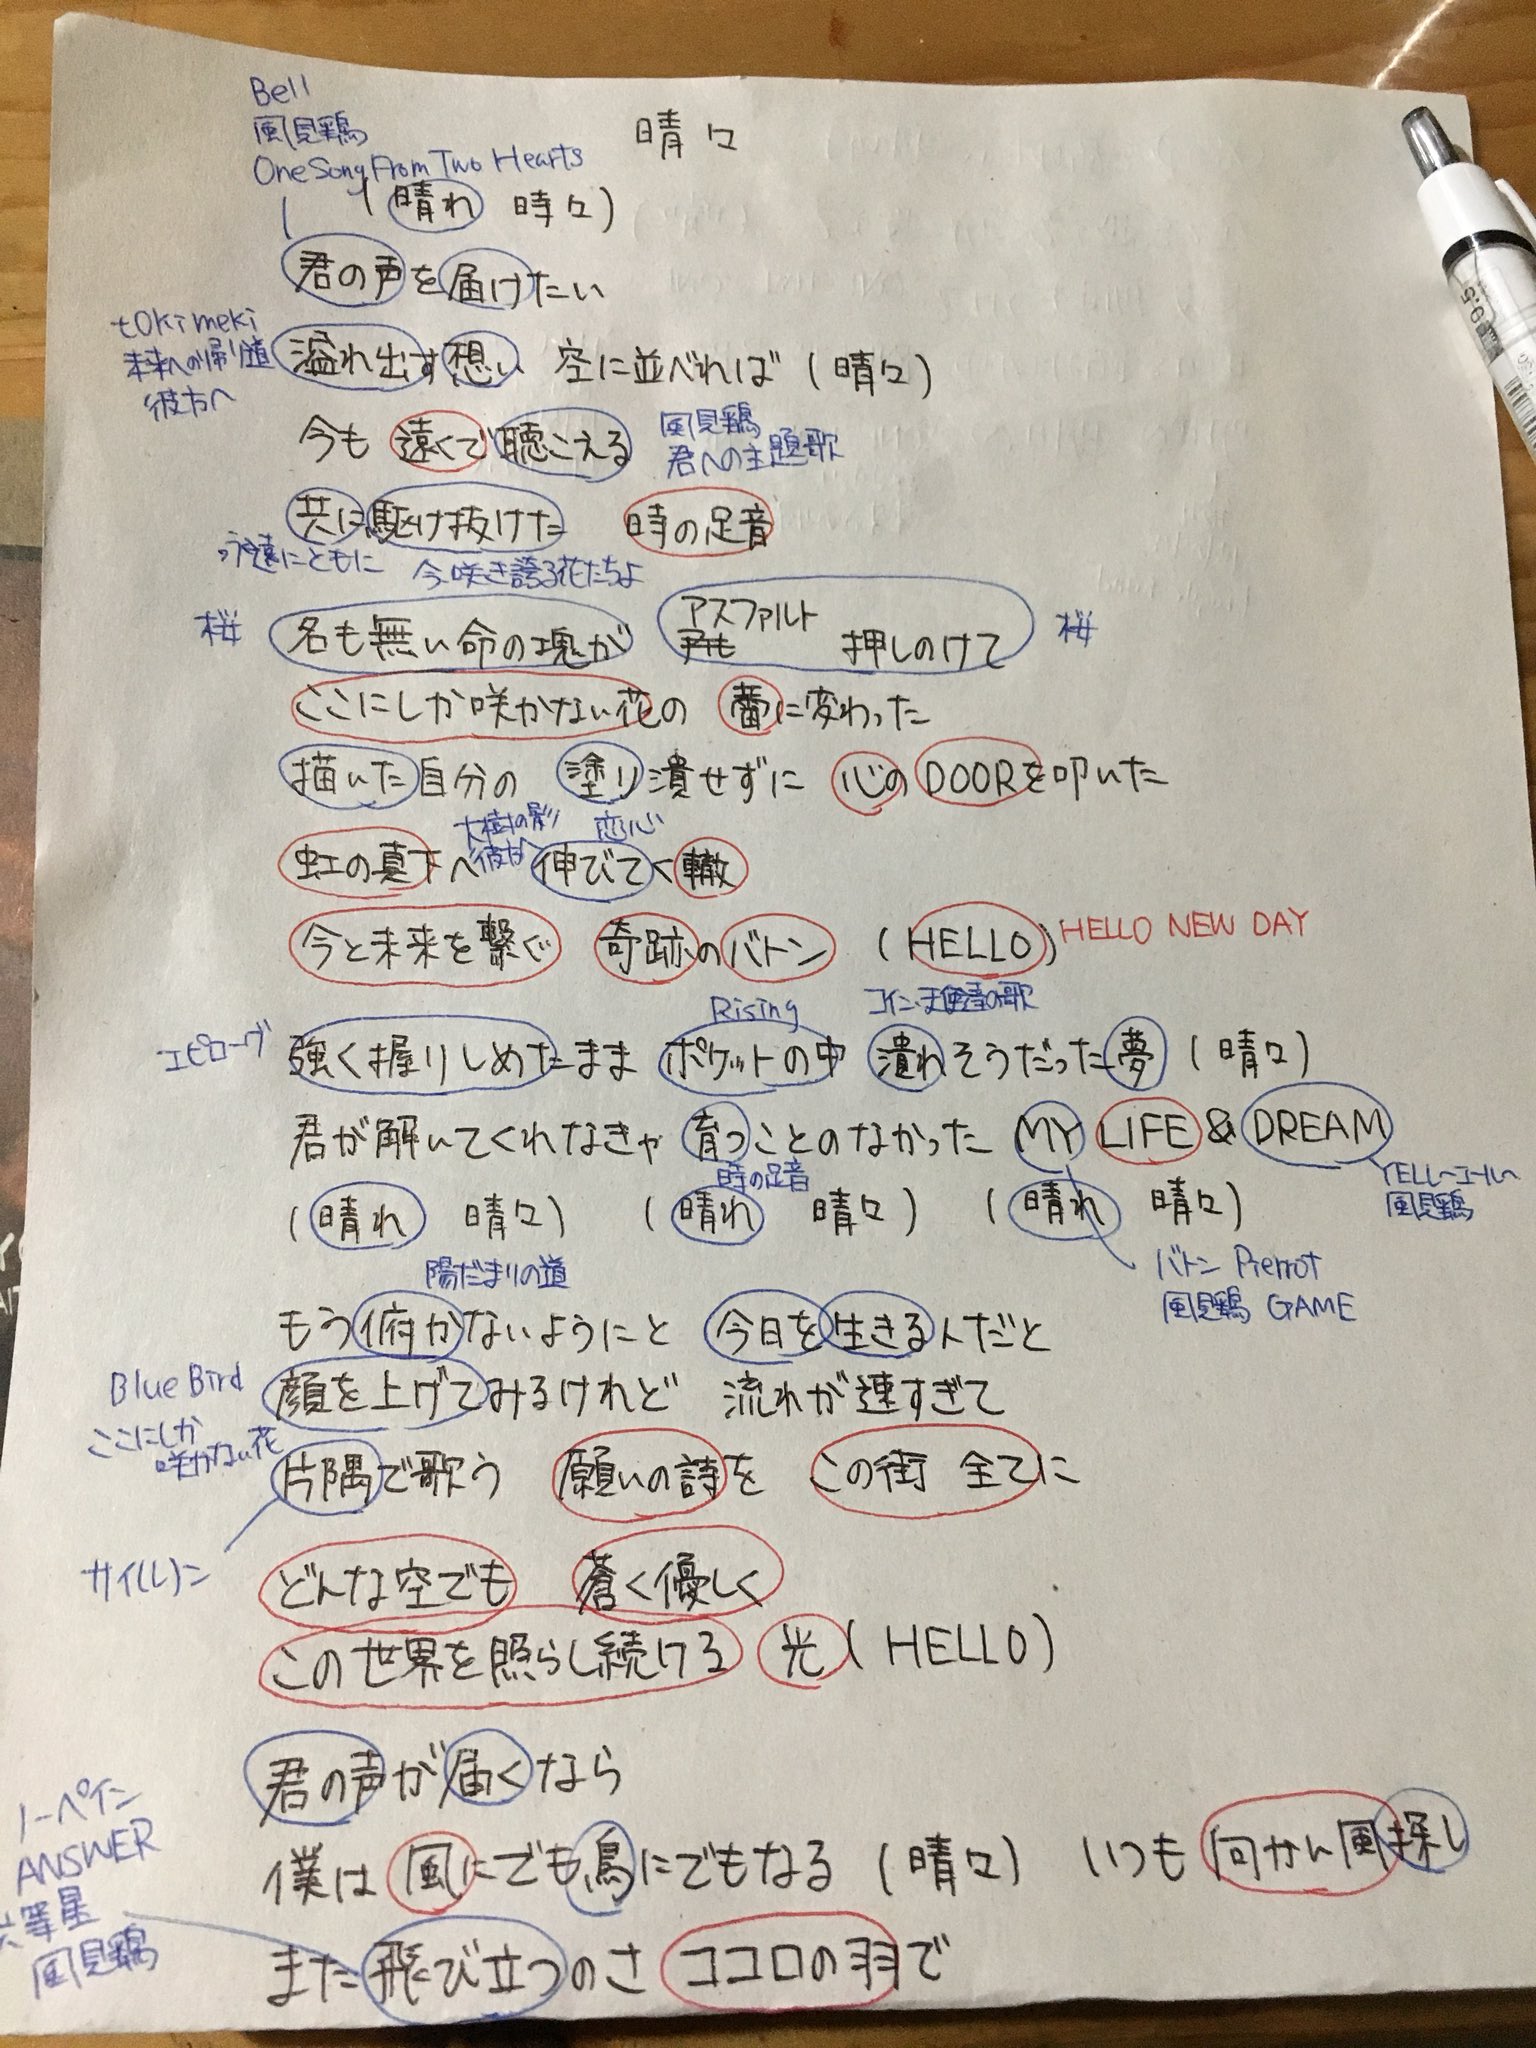 Bell
風見鶏
One Song From Two Hearts
晴々
(晴れ 時々)
君の声を届けたい
tOKi meki
未来への帰り道
彼方へ
溢れ出す想い 空に並べれば (晴々)
今も 遠くで聴こえる
風見鶏
君への主題歌
共に駆け抜けた 時の足音
永遠にともに 今、咲き誇る花たちよ
桜 名も無い命の塊が アスファルト 押しのけて 桜
ここにしか咲かない花の 蕾に変わった
描いた自分の 塗り潰せずに 心のDOORを叩いた
大樹の影 恋心
彼方へ
虹の真下へ 伸びてく轍
今と未来を繋ぐ 奇跡のバトン (HELLO) HELLO NEW DAY
Rising
エピローグ 強く握りしめたまま ポケットの中 潰れそうだった夢 (晴々)
君が解いてくれなきゃ 育つことのなかった MY LIFE & DREAM
時の足音
YELL〜エール〜
風見鶏
(晴れ 晴々) (晴れ 晴々) (晴れ 晴々)
陽だまりの道
バトン Pierrot
風見鶏 GAME
もう俯かないようにと 今日を生きる人だと
Blue Bird 顔を上げてみるけれど 流れが速すぎて
ここにしか
咲かない花
片隅で歌う 願いの詩を この街 全てに
サイ(レ)ン
どんな空でも 蒼く優しく
この世界を照らし続ける 光 (HELLO)
君の声が届くなら
ノーペイン
ANSWER
六等星
風見鶏
僕は風にでも鳥にでもなる (晴々) いつも 向かい風探し
また飛び立つのさ ココロの羽で
0.5